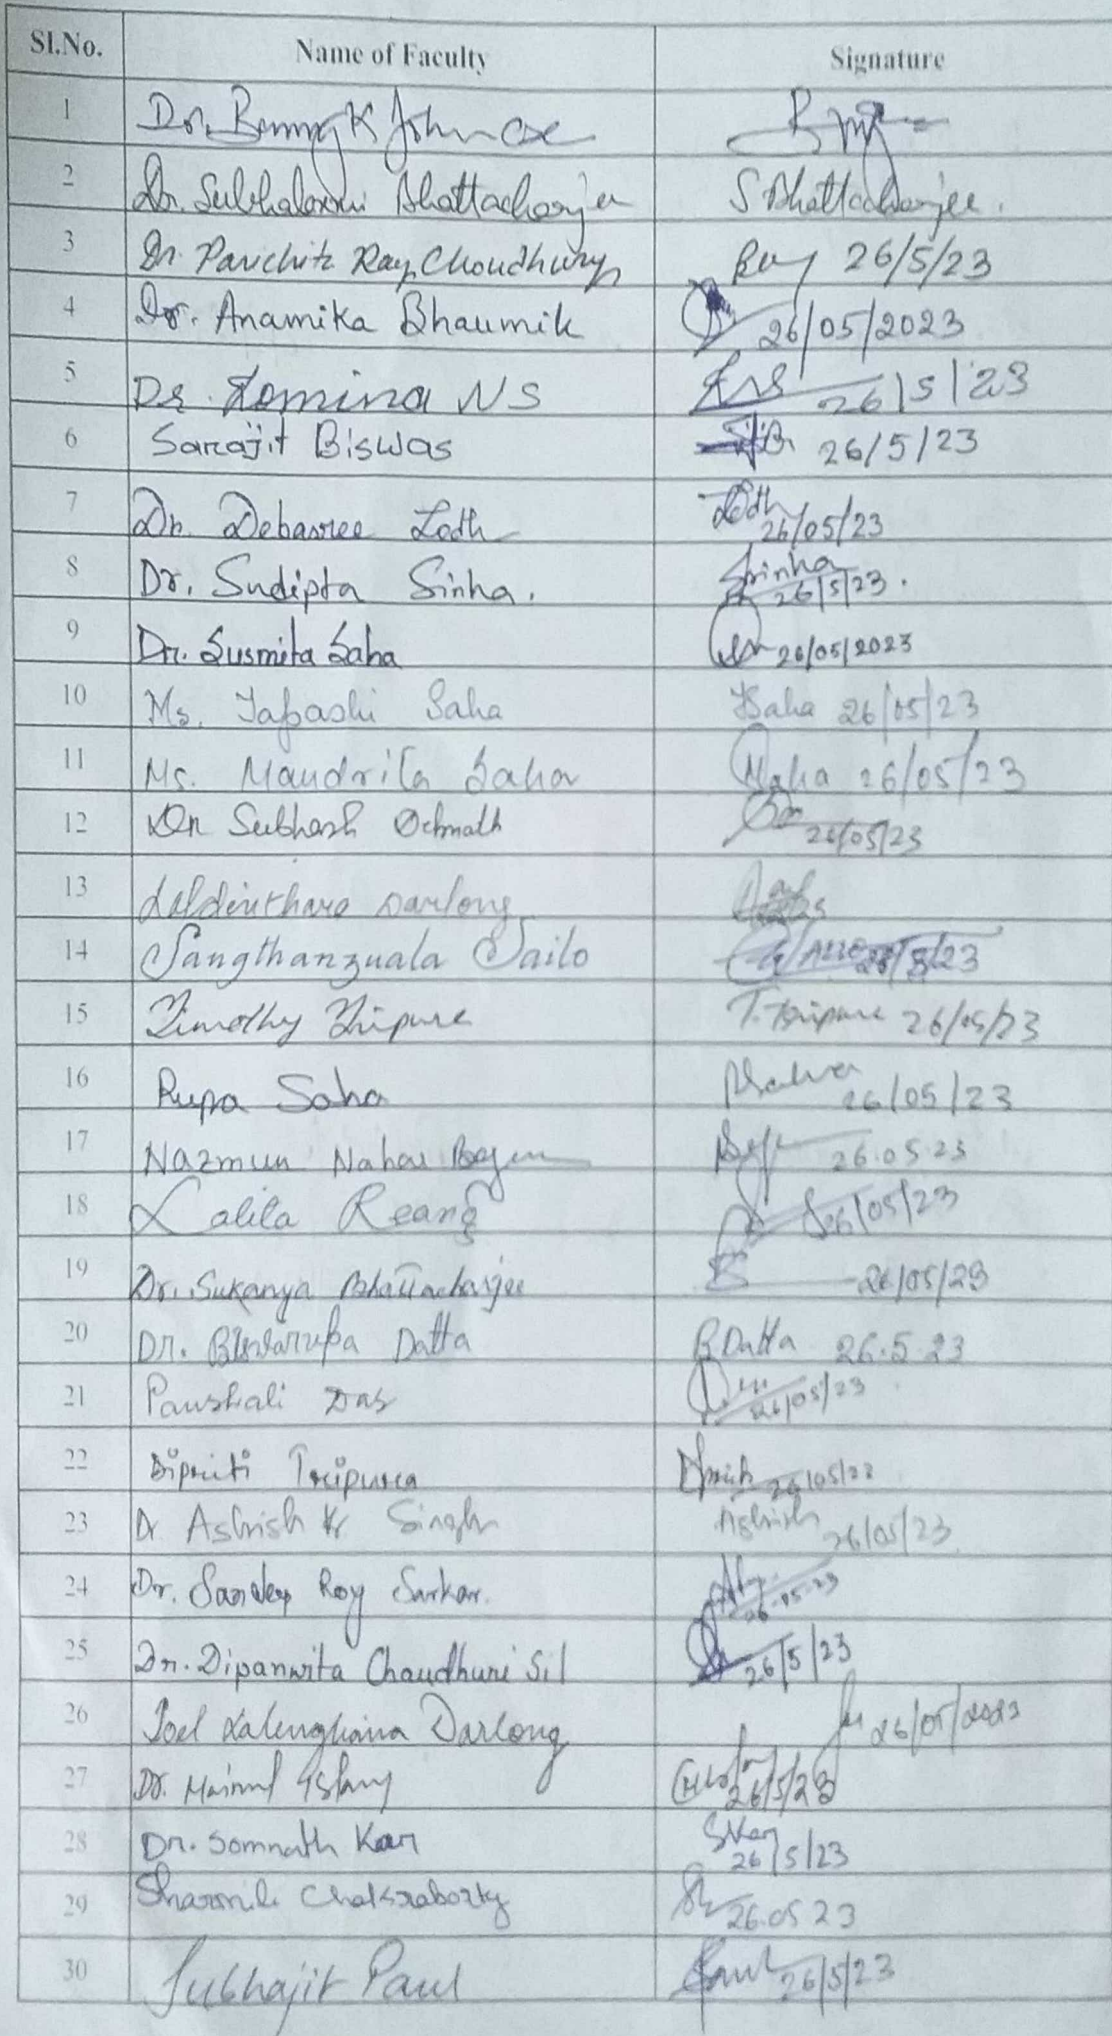 Sl.No. Name of Faculty Signature
1 Dr. Benny K John
2 Dr. Subhalaxmi Bhattacharjee S Bhattacharjee.
3 Dr. Parichita Ray Choudhury Ray 26/5/23
4 Dr. Anamika Bhaumik 26/05/2023
5 Dr. Lomina NS LNS 26/5/23
6 Sarajit Biswas 26/5/23
7 Dr. Debasree Lodh Lodh 26/05/23
8 Dr. Sudipta Sinha. Sinha 26/5/23.
9 Dr. Susmita Saha 26/05/2023
10 Ms. Tapashi Saha TSaha 26/05/23
11 Ms. Mandrila Saha 26/05/23
12 Dr Subhash 26/05/23
13 Darlong
14 Sangthanzuala Sailo 23
15 Timothy Tripura T. Tripura 26/05/23
16 Rupa Saha RSaha 26/05/23
17 Nazmun Nahar Begum 26.05.23
18 Lalita Reang 26/05/23
19 Dr. Sukanya Bhattacharjee 26/05/23
20 Dr. Biswarupa Datta B Datta 26.5.23
21 Paushali Das 26/05/23
22 Dipriti Tripura 26/05/23
23 Dr Ashish Kr Singh Ashish 26/05/23
24 Dr. Sandeep Roy Sarkar. 26.05.23
25 Dr. Dipanwita Chaudhuri Sil 26/5/23
26 Joel Lalenghana Darlong 26/05/2023
27 Dr. Mainul Islam 26/5/23
28 Dr. Somnath Kar SKar 26/5/23
29 Sharmili Chakraborty 26.05.23
30 Subhajit Paul Paul 26/5/23